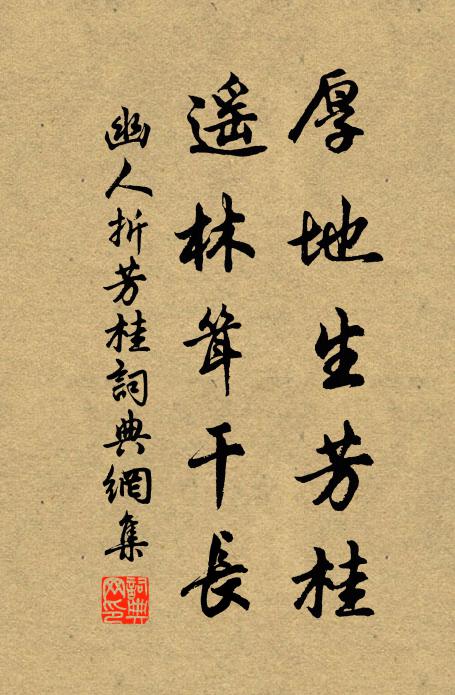 厚地生芳桂
遥林耸干長
幽人折芳桂詞典網集
詞典网印